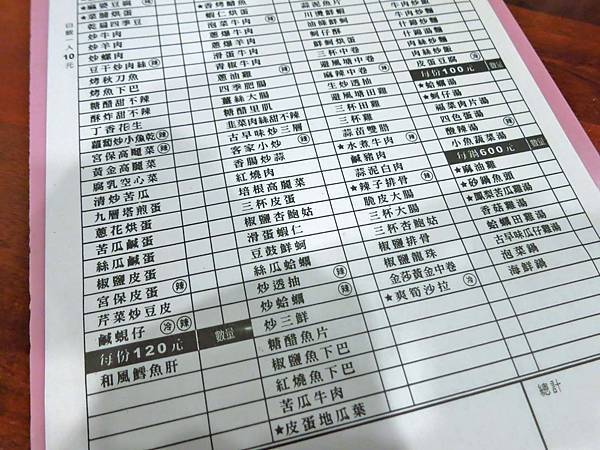 白飯一人10元
★菜脯烘蛋
乾扁四季豆
炒牛肉
炒羊肉
炒螺肉
豆干炒肉絲 辣
烤秋刀魚
烤魚下巴
糖醋甜不辣
酥炸甜不辣
丁香花生
蘿蔔炒小魚乾 辣
宮保高麗菜 辣
黃金高麗菜
腐乳空心菜
清炒苦瓜
九層塔煎蛋
蔥花烘蛋
苦瓜鹹蛋
絲瓜鹹蛋
椒鹽皮蛋
宮保皮蛋 辣
芹菜炒豆皮
鹹蜆仔 冷 辣
每份120元 數量
和風鱈魚肝
★香烤鯖魚
蝦仁烘蛋
泡菜牛肉
蔥爆牛肉
蔥爆羊肉
滑蛋牛肉
青椒牛肉
蔥油雞
四季肥腸
薑絲大腸
糖醋里肌
韭菜肉絲甜不辣
古早味炒三層
客家小炒 辣
香腸炒蒜
紅燒肉
培根高麗菜
三杯皮蛋
椒鹽杏鮑菇
滑蛋蝦仁
豆鼓鮮蚵
絲瓜蛤蠣
炒透抽 辣
炒蛤蠣 辣
炒三鮮
糖醋魚片
椒鹽魚下巴
紅燒魚下巴
苦瓜牛肉
★皮蛋地瓜葉
蒜泥魚片
川燙鮮蚵
油條鮮蚵
蚵仔酥
鮮蚵烘蛋
三杯中卷
避風塘中卷
麻辣中卷 辣
生炒透抽
避風塘田雞
三杯田雞
三杯雞
蒜苗雙腊
★水煮牛肉 辣
鹹豬肉
蒜泥白肉
★辣子排骨 辣
脆皮大腸
三杯大腸
三杯杏鮑菇
椒鹽排骨
椒鹽龍珠
金莎黃金中卷
★爽筍沙拉 冷
牛肉炒飯
牛肉炒麵
什錦炒麵
什錦湯麵
肉絲炒麵
肉絲炒飯
皮蛋豆腐 冷
每份100元 數量
★蛤蠣湯
★蚵仔湯
福菜肉片湯
四色蛋湯
酸辣湯
小魚蔬菜湯
每鍋600元 數量
★麻油雞
★砂鍋魚頭
★鳳梨苦瓜雞湯
香菇雞湯
蛤蠣田雞湯
古早味瓜仔雞湯
泡菜鍋
海鮮鍋
總計